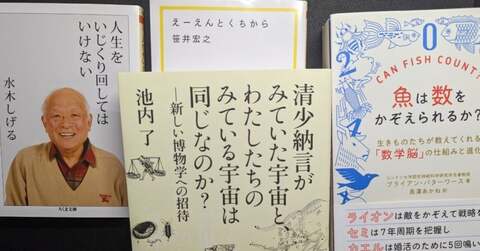 人生を
いじくり回しては
いけない
水木しげる
ちくま文庫
えーえんとくちから
笹井宏之
清少納言が
みていた宇宙と
わたしたちの
みている宇宙は
同じなのか?
―新しい博物学への招待
池内 了
CAN FISH COUNT?
魚は数を
かぞえられるか?
生きものたちが教えてくれる
「数学脳」の仕組みと進化
ブライアン・バターワース 著
長澤あかね 訳
ライオンは敵をかぞえて戦略を
セミは7年周期を把握し
カエルは婚活のために5回鳴い